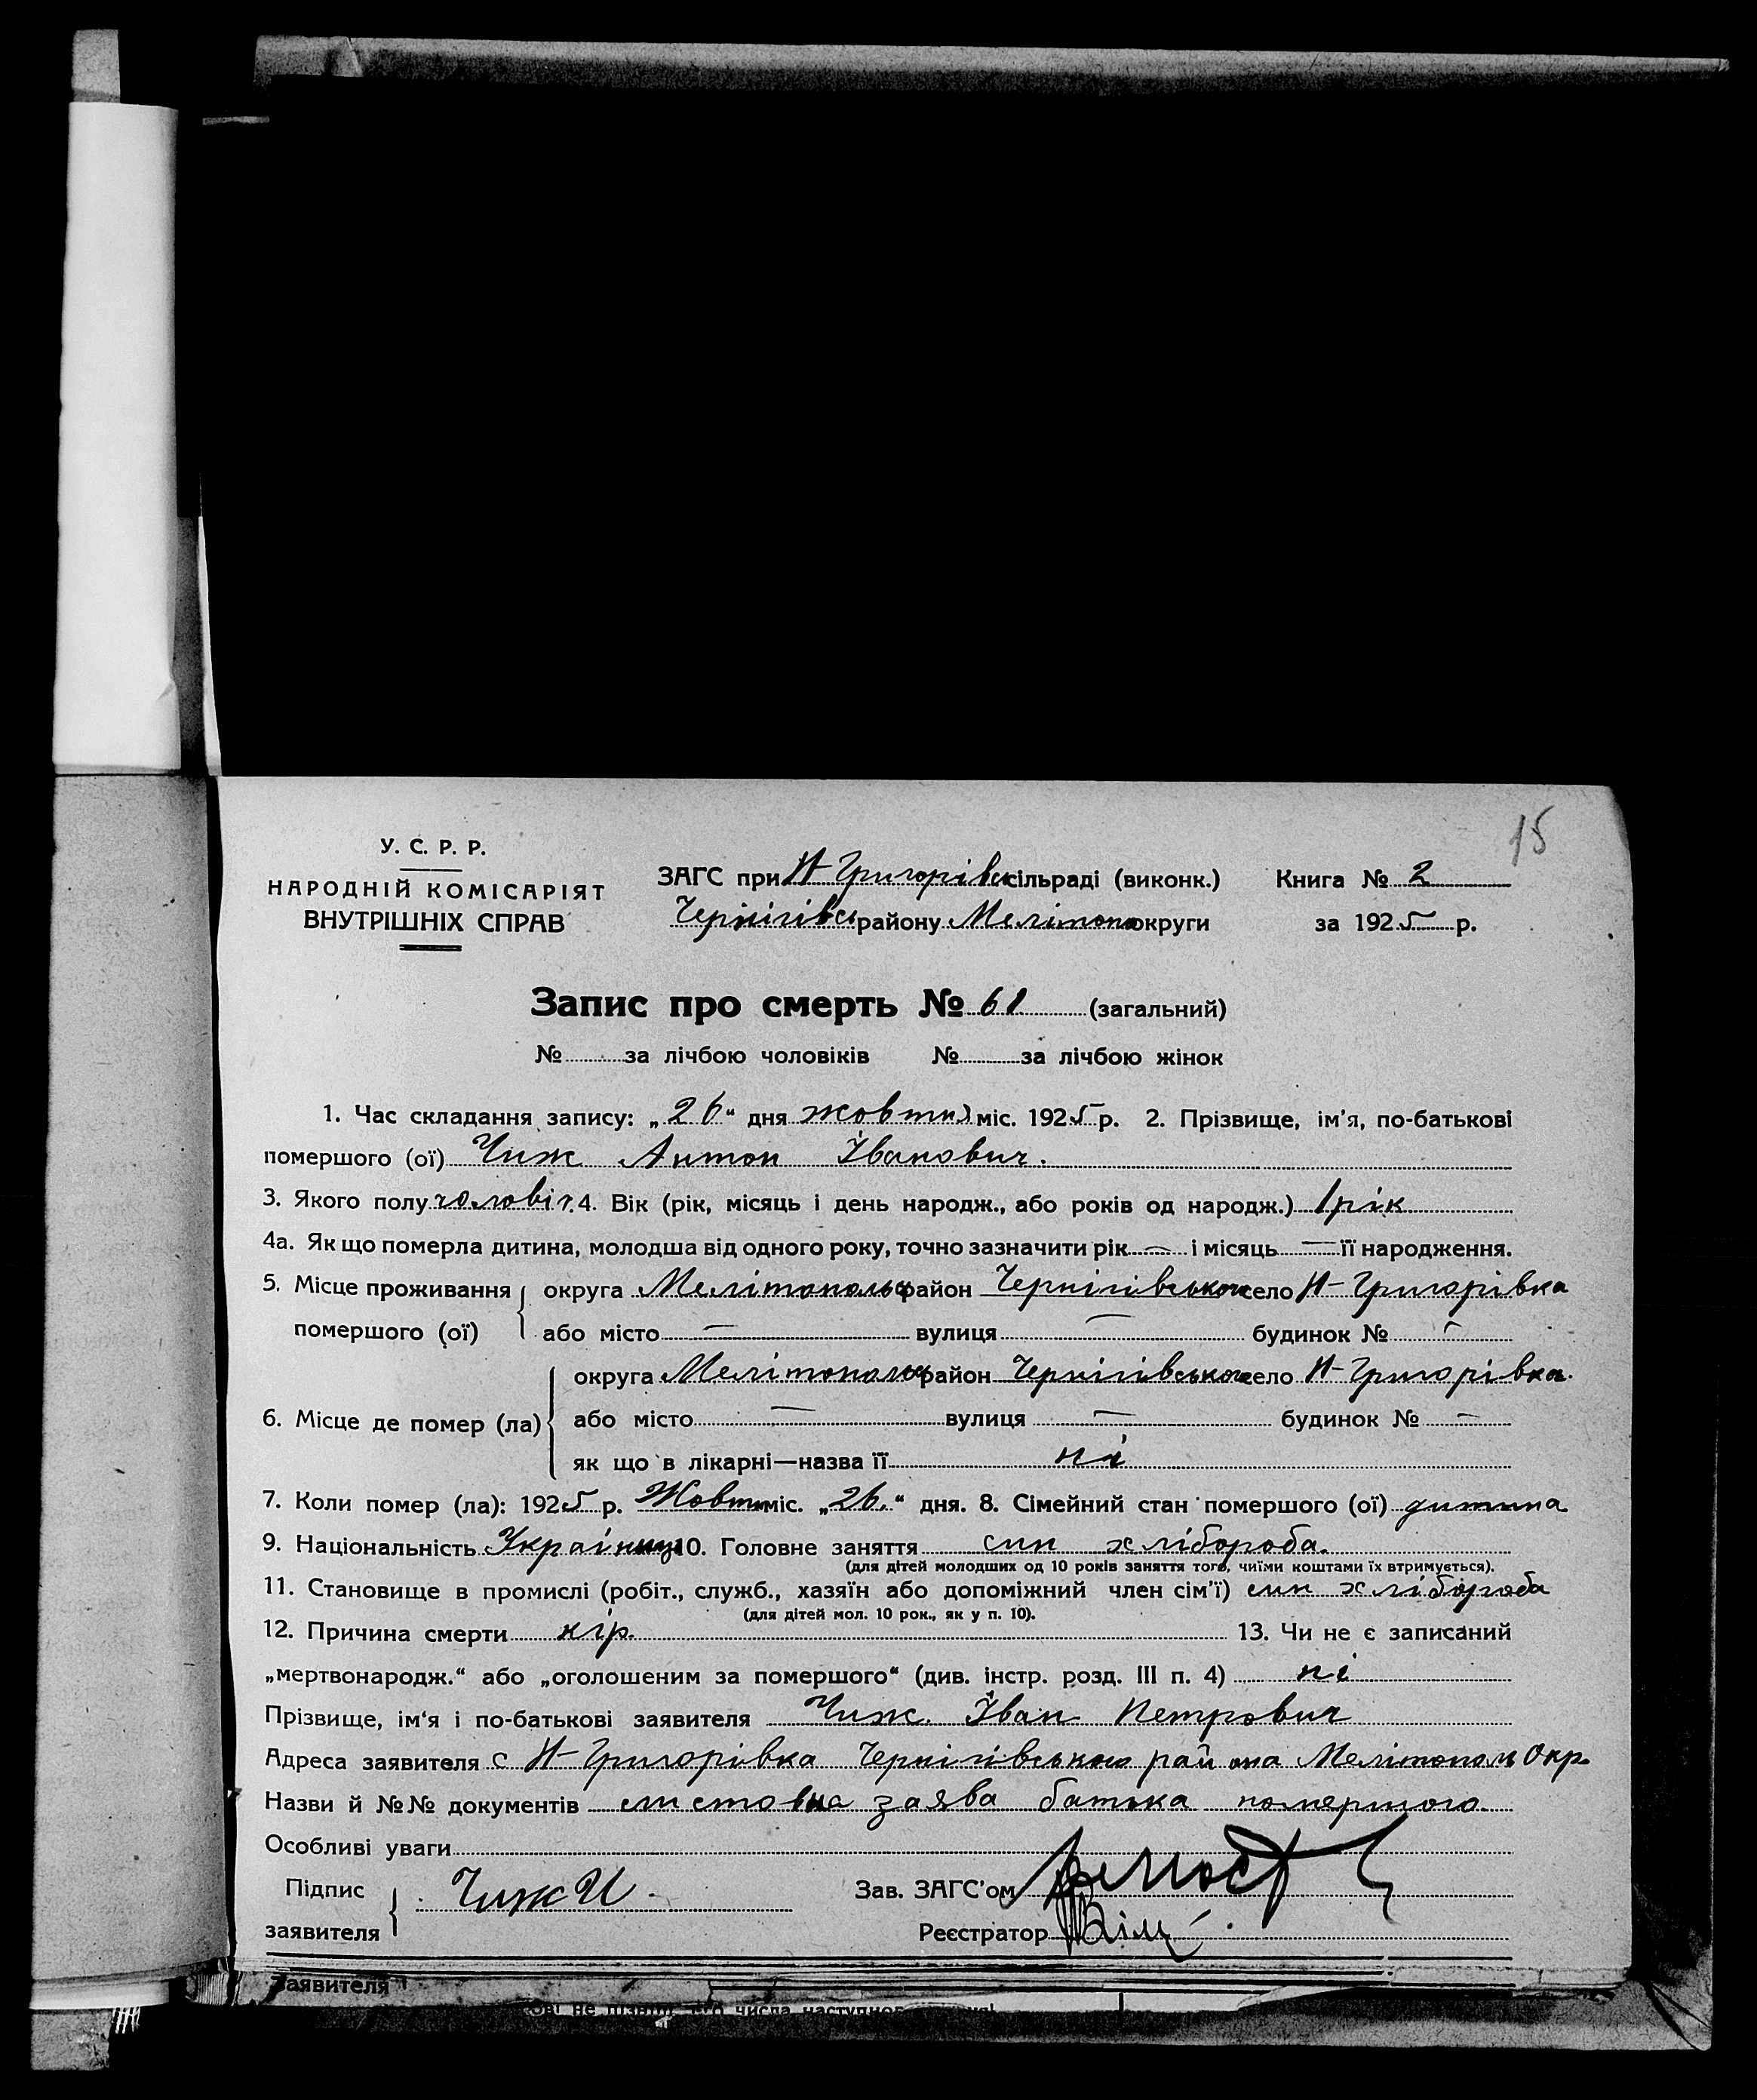 15
У. С. Р. Р.
НАРОДНІЙ КОМІСАРІЯТ
ВНУТРІШНІХ СПРАВ
ЗАГС при Н-Григорівс сільраді (виконк.) Книга № 2
Чернігівсь району Мелітопо округи за 1925 р.
Запис про смерть № 61 (загальний)
№ за лічбою чоловіків № за лічбою жінок
1. Час складання запису: „26“ дня жовтня міс. 1925 р. 2. Прізвище, ім'я, по-батькові
помершого (ої) Чиж Антон Іванович.
3. Якого полу чоловіч. 4. Вік (рік, місяць і день народж., або років од народж.) 1 рік
4а. Як що померла дитина, молодша від одного року, точно зазначити рік — і місяць — її народження.
5. Місце проживання округа Мелітопольс район Чернігівського село Н-Григорівка
помершого (ої) або місто — вулиця — будинок № —
округа Мелітопольс район Чернігівського село Н-Григорівка.
6. Місце де помер (ла) або місто — вулиця — будинок № —
як що в лікарні—назва її ні
7. Коли помер (ла): 1925 р. Жовтн міс. „26.“ дня. 8. Сімейний стан помершого (ої) дитина
9. Національність Українць 10. Головне заняття син хлібороба.
(для дітей молодших од 10 років заняття того, чиїми коштами їх втримується).
11. Становище в промислі (робіт., служб., хазяїн або допоміжний член сім'ї) син хлібороба
(для дітей мол. 10 рок., як у п. 10).
12. Причина смерти кір. 13. Чи не є записаний
„мертвонародж.“ або „оголошеним за помершого“ (див. інстр. розд. III п. 4) ні
Прізвище, ім'я і по-батькові заявителя Чиж. Іван Петрович
Адреса заявителя с Н-Григорівка Чернігівського района Мелітополь Окр
Назви й №№ документів заява батька помершого.
Особливі уваги
Підпис Чиж И. Зав. ЗАГС'ом
заявителя Реєстратор
Заявителя
числа наступног